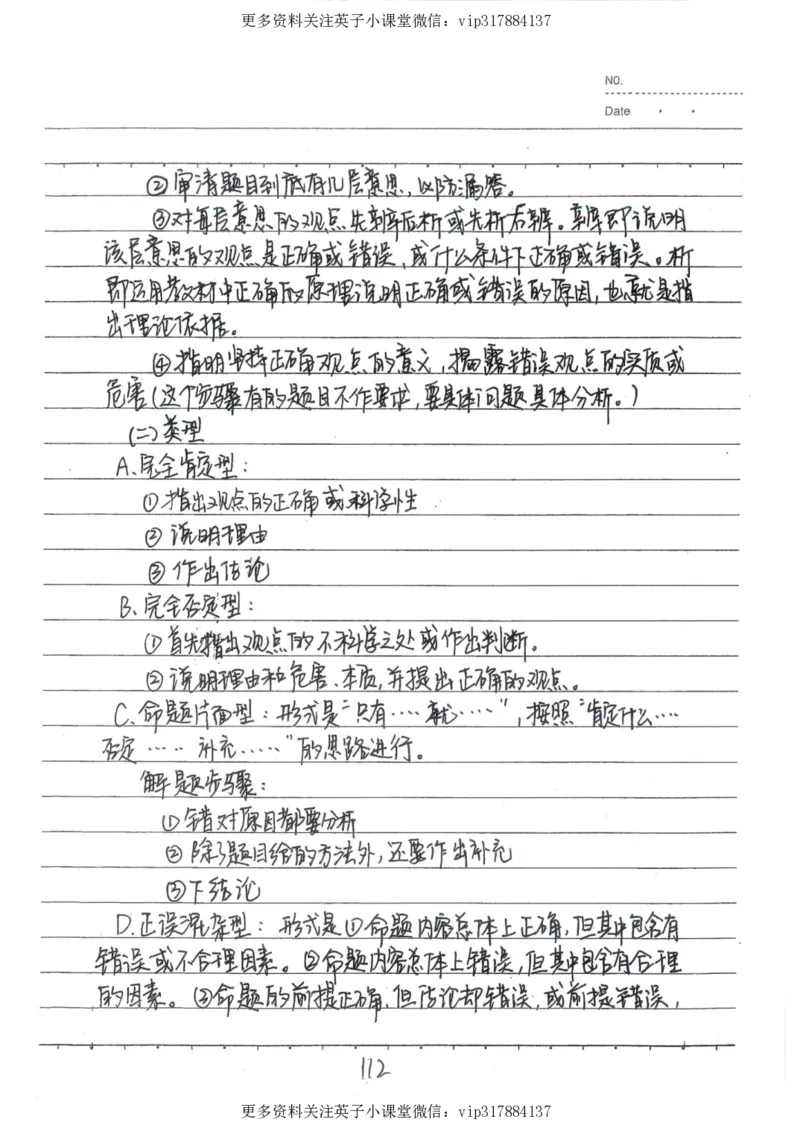 更多资料关注英子小课堂微信：vip317884137
NO.
Date
②审清题目到底有几层意思，以防漏答。
③对每层意思的观点先辨后析或先析后辨。辨即说明
该层意思的观点是正确或错误，或什么条件下正确或错误。析
即运用教材中正确的原理说明正确或错误的原因，也就是指
出理论依据。
④指明坚持正确观点的意义，揭露错误观点的实质或
危害（这个步骤有的题目不作要求，要具体问题具体分析。）
(二)类型
A.完全肯定型：
①指出观点的正确或科学性
②说明理由
③作出结论
B.完全否定型：
①首先指出观点的不科学之处或作出判断。
②说明理由和危害、本质，并提出正确的观点。
C.命题片面型：形式是“只有……就……”，按照“肯定什么……
否定……补充……”的思路进行。
解题步骤：
①错对原因都要分析
②除了题目给的方法外，还要作出补充
③下结论
D.正误混杂型：形式是①命题内容总体上正确，但其中包含有
错误或不合理因素。②命题内容总体上错误，但其中包含有合理
的因素。③命题的前提正确，但结论却错误，或前提错误，
112
更多资料关注英子小课堂微信：vip317884137